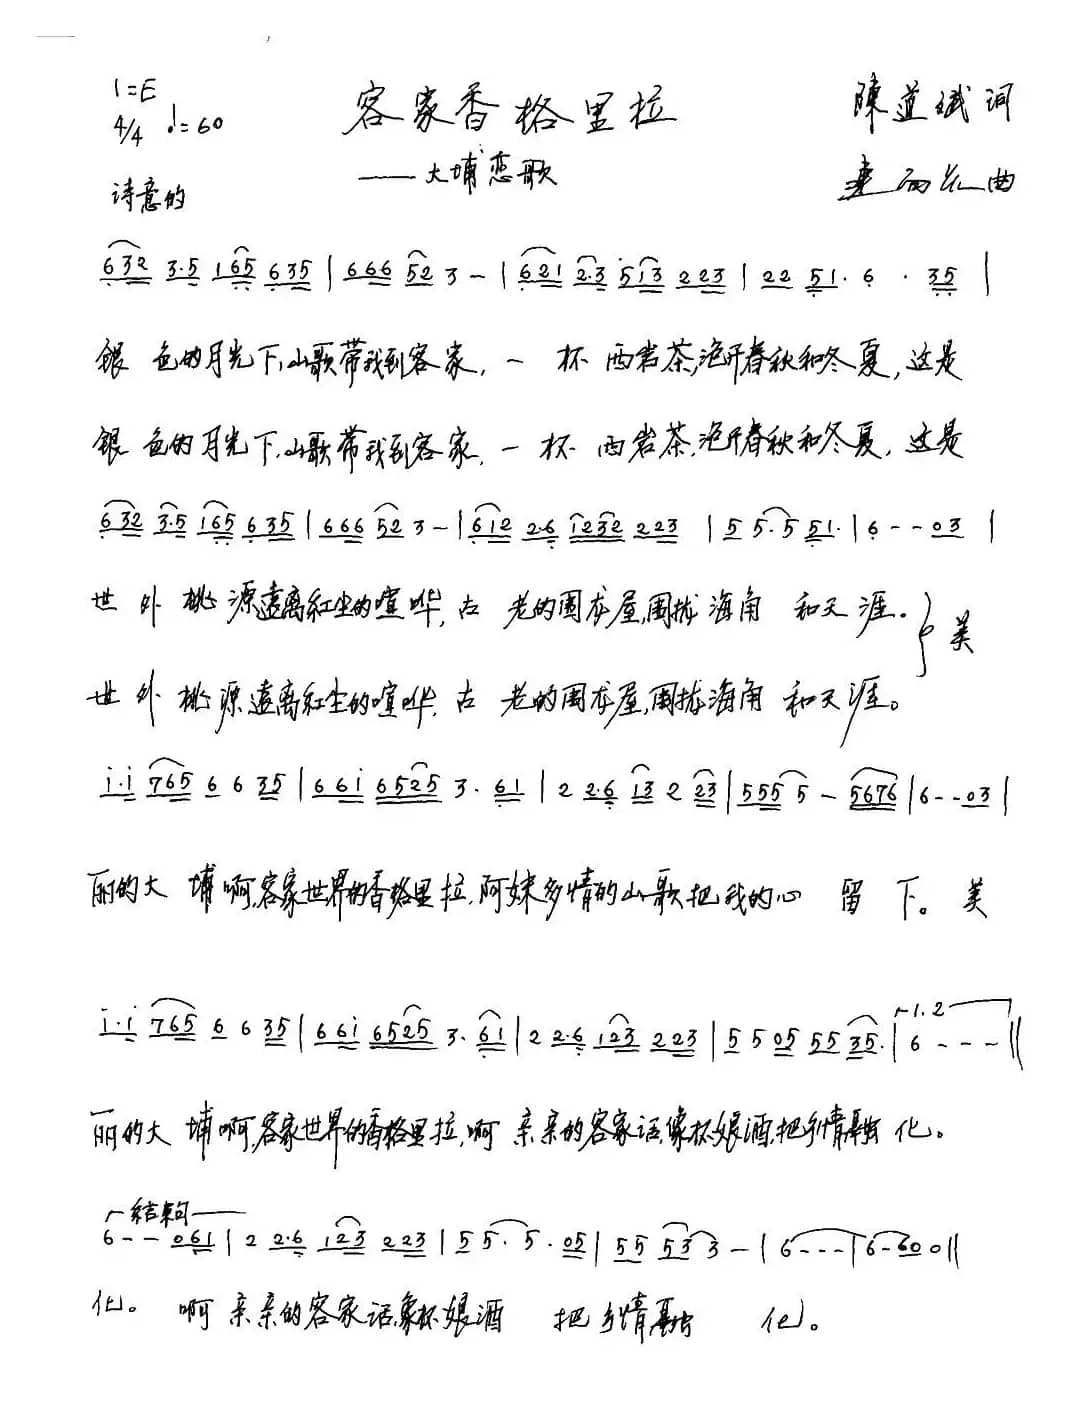 1=E
4/4 ♩=60
客家香格里拉
陳道斌词
——大埔恋歌
曲
诗意的
632 3·5 165 635 | 666 52 3 - | 621 2·3 513 223 | 22 51· 6 · 35 |
银色的月光下,山歌带我到客家,一杯西岩茶,泡开春秋和冬夏,这是
银色的月光下,山歌带我到客家,一杯西岩茶,泡开春秋和冬夏,这是
632 3·5 165 635 | 666 52 3 - | 612 2·6 1232 223 | 5 5·5 51· | 6 - - 03 |
世外桃源遠离紅尘的喧哗,古老的围龙屋,围拢海角和天涯。} 美
世外桃源遠离紅尘的喧哗,古老的围龙屋,围拢海角和天涯。
i·i 765 6 6 35 | 66i 6525 3· 61 | 2 2·6 13 2 23 | 555 5 - 5676 | 6 - - 03 |
丽的大埔啊,客家世界的香格里拉,阿妹多情的山歌把我的心留下。美
i·i 765 6 6 35 | 66i 6525 3· 61 | 2 2·6 123 223 | 5 5 05 55 35· | 1.2 6 - - - ‖
丽的大埔啊,客家世界的香格里拉,啊亲亲的客家话,像杯娘酒,把乡情融化。
结束句
6 - - 061 | 2 2·6 123 223 | 5 5· 5· 05 | 55 53 3 - | 6 - - - | 6 - 60 0 ‖
化。啊亲亲的客家话,像杯娘酒把乡情融化。